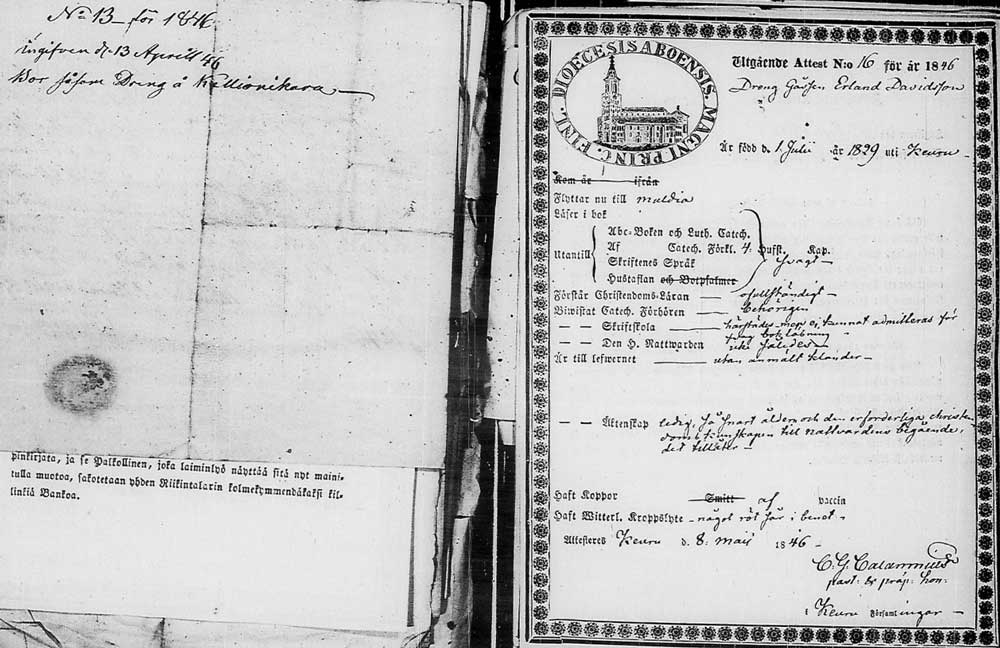 No 13 för 1846
ingifven d. 13 Aprill 46
Bor såsom Dreng å Kallionikara
pinkirjata, ja se Palkollinen, joka laiminlyö näyttää sitä nyt maini-
tulla muotoa, sakotetaan yhden Riikintalarin kolmekymmendäkaksi kil-
linkiä Bankoa.
DIOECESIS ABOENSIS. MAGNI PRINC. FINL.
Utgående Attest N:o 16 för år 1846
Dreng Gåssen Erland Davidsson
Är född d. 1 Juli år 1829 uti Keuru
Kom år ifrån
Flyttar nu till Muldia
Läser i bok
Utantill
Abc-Boken och Luth. Catech.
Af Catech. Förkl. 4 Hufst. Kap.
Skriftenes Språk svagt
Hustaflan och Botpsalmer
Förstår Christendoms-Läran ofullständigt
Biwistat Catech. Förhören behörigen
— — Skriftskola härstädes men ej kunnat admitteras för
— — Den H. Nattwarden
Är till lefwernet utan anmält klander
— — Äktenskap ledig, så snart åldern och den erforderliga christen-
doms kunskapen till nattvardens begående,
det tillåter
Haft Koppor Smitt af vaccin
Haft Witterl. Kroppslyte något rötsår i benet
Attesteres Keuru d. 8 Maii 1846
C. G. Calamnius
past. & præp: hon:
i Keuru Församlingar